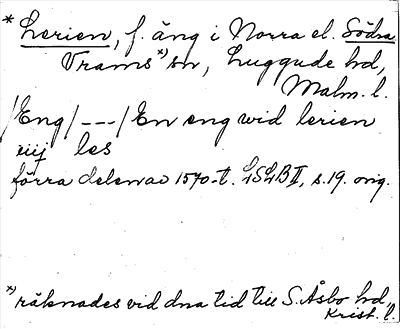 * Lerien, f. äng i Norra el. Södra
Vrams x) sn, Luggude hd,
Malm. l.
/Eng/ --- / En eng wid lerien
iiij les
förra delen av 1570-t. LSLB II, s. 19. orig.
x) räknades vid dna tid till S. Åsbo hd,
Krist. l.